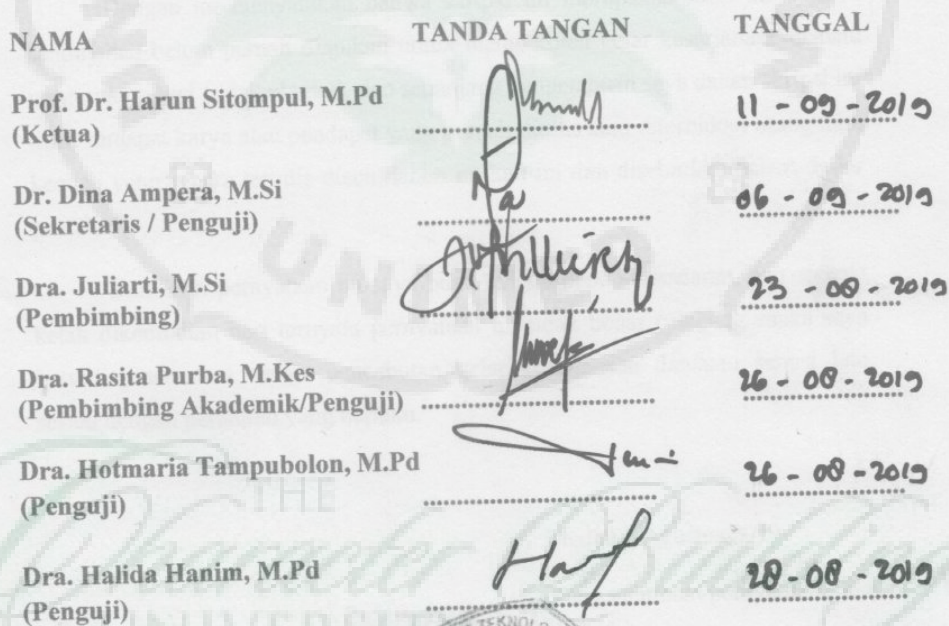 NAMA TANDA TANGAN TANGGAL
Prof. Dr. Harun Sitompul, M.Pd
(Ketua) 11 - 09 - 2019
Dr. Dina Ampera, M.Si
(Sekretaris / Penguji) 06 - 09 - 2019
Dra. Juliarti, M.Si
(Pembimbing) 23 - 08 - 2019
Dra. Rasita Purba, M.Kes
(Pembimbing Akademik/Penguji) 26 - 08 - 2019
Dra. Hotmaria Tampubolon, M.Pd
(Penguji) 26 - 08 - 2019
Dra. Halida Hanim, M.Pd
(Penguji) 28 - 08 - 2019
UNIMED
THE
Character Building
UNIVERSIT